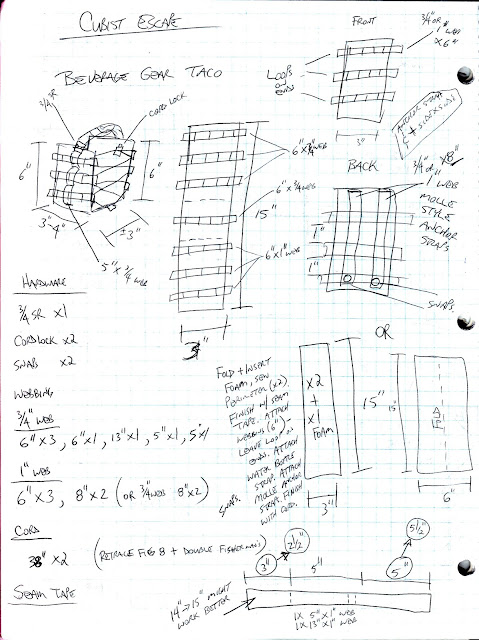 CUBIST ESCAPE
BEVERAGE GEAR TACO
3/4 SR
CORD LOCK
6"
6"
3"
4"
±3"
5" x 3/4 WEB
6" x 3/4 WEB
6" x 3/4 WEB
15"
6" x 1" WEB
FRONT
3/4" OR
1" WEB
x 6"
LOOPS
ON
ENDS
3"
ANCHOR STRAP
BACK
3/4" OR x8"
1" WEB
MOLLE
STYLE
ANCHOR
STRAPS
1"
1"
SNAPS.
OR
HARDWARE
3/4 SR x1
CORDLOCK x2
SNAP x2
WEBBING
3/4" WEB
6" x 3, 6" x 1, 13" x 1, 5" x 1, 5" x 1
1" WEB
6" x 3, 8" x 2 (OR 3/4 WEB 8" x 2)
CORD
38" x 2 (RETRACE FIG 8 + DOUBLE FISHERMAN'S)
SEAM TAPE
FOLD + INSERT
FOAM, SEW
PERIMETER (x2).
FINISH W/ SEAM
TAPE. ATTACH
WEBBING (6") -
LEAVE LOOP ON
ENDS. ATTACH
WATER BOTTLE
STRAP. ATTACH
MOLLE ANCHOR
STRAPS. FINISH
WITH CORD.
SNAPS.
x2
+
x1
FOAM
15"
15"
3"
6"
3"
2 1/2"
5"
5"
5 1/2"
14" → 15" MIGHT
WORK BETTER
1x 5" x 1" WEB
1x 13" x 1" WEB